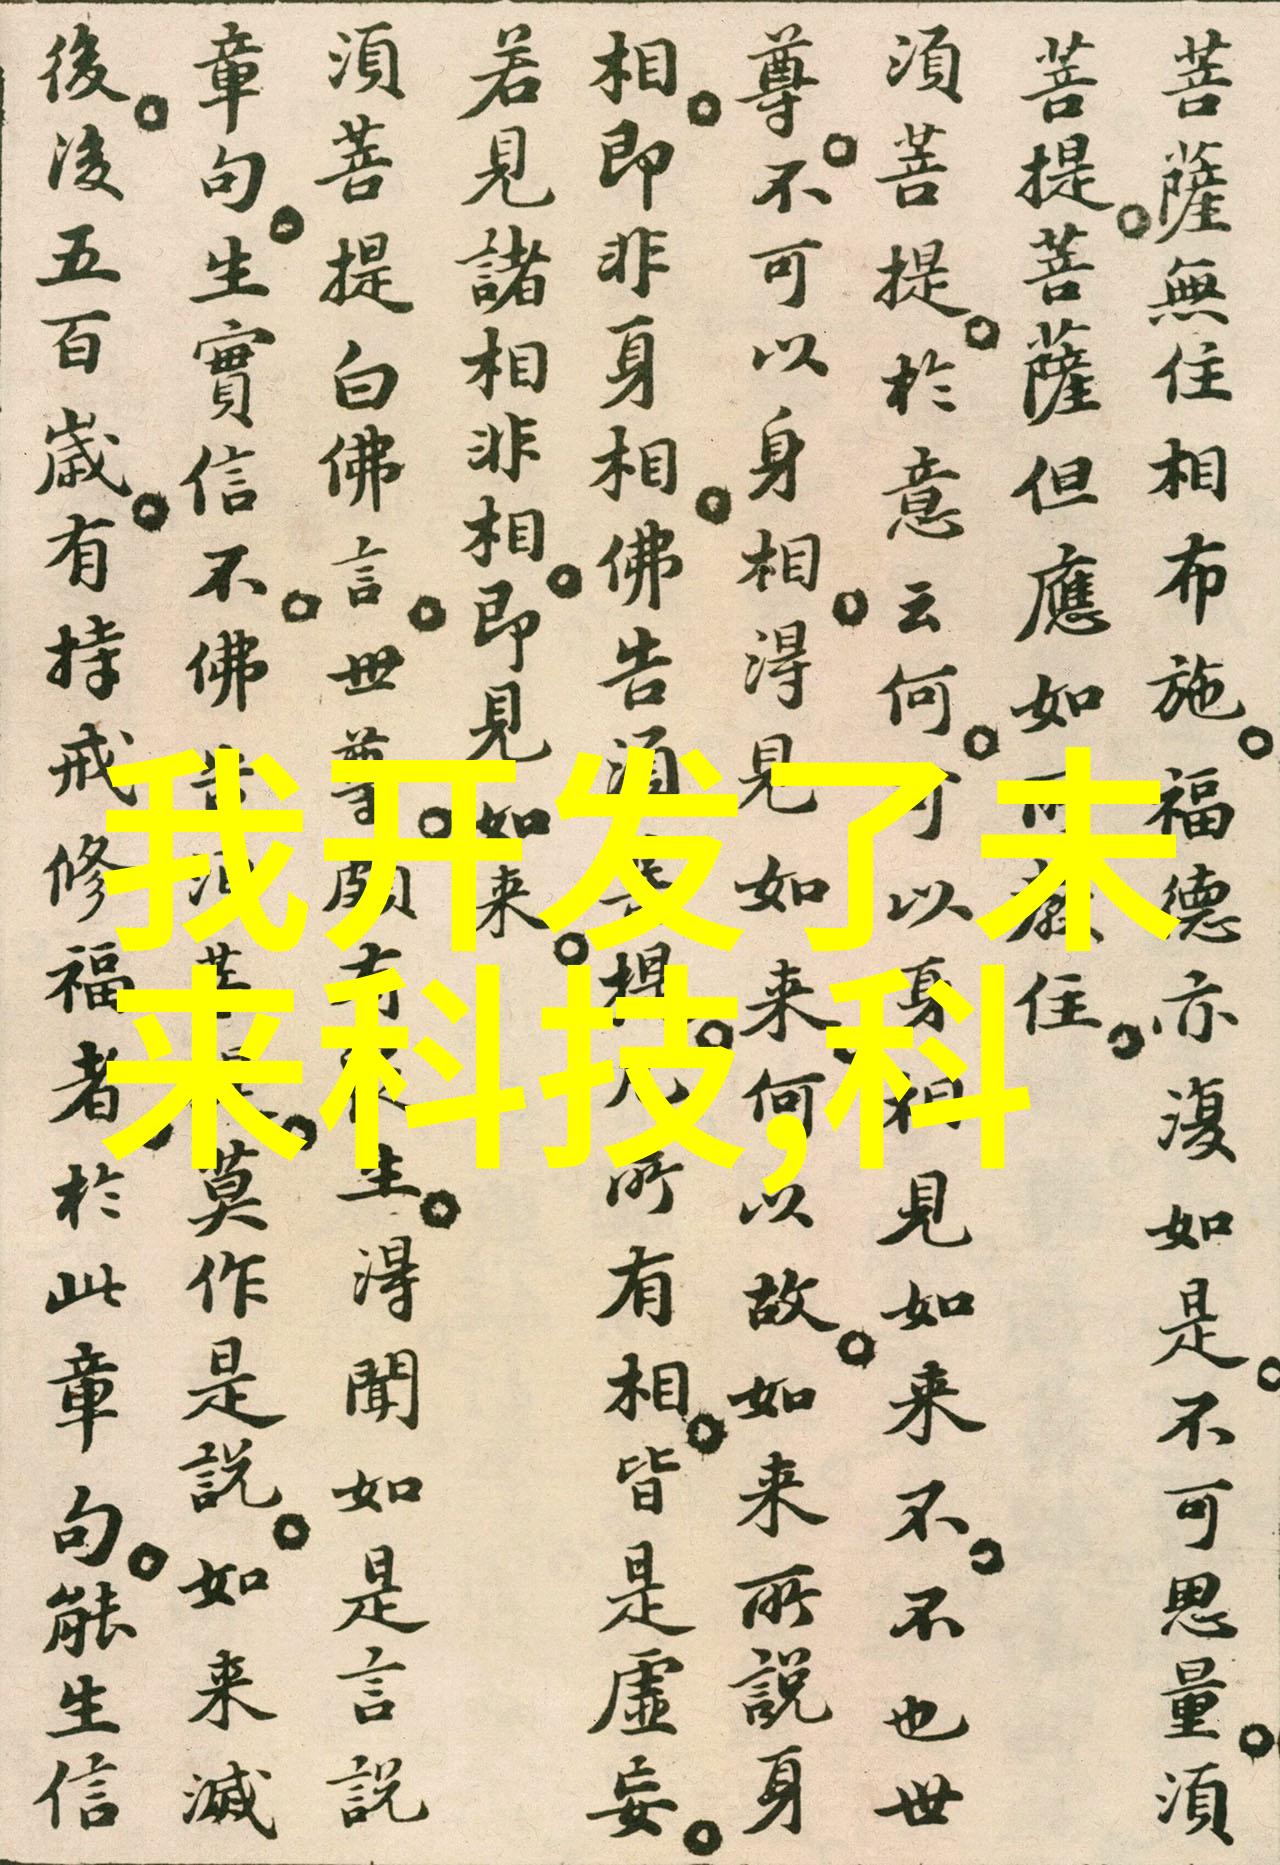 菩薩無住相布施。福德亦復如是。不可思量。須
菩提。菩薩但應如所教住。
須菩提。於意云何。可以身相見如来不。不也世
尊。不可以身相。得見如来。何以故。如来所說身
相。即非身相。佛告須菩提。凡所有相。皆是虛妄。
若見諸相非相。即見如来。
須菩提白佛言。世尊。頗有衆生。得聞如是言說
章句。生實信不。佛告須菩提。莫作是說。如来滅
後。後五百歲。有持戒修福者。於此章句。能生信
我开发了未
来科技,科